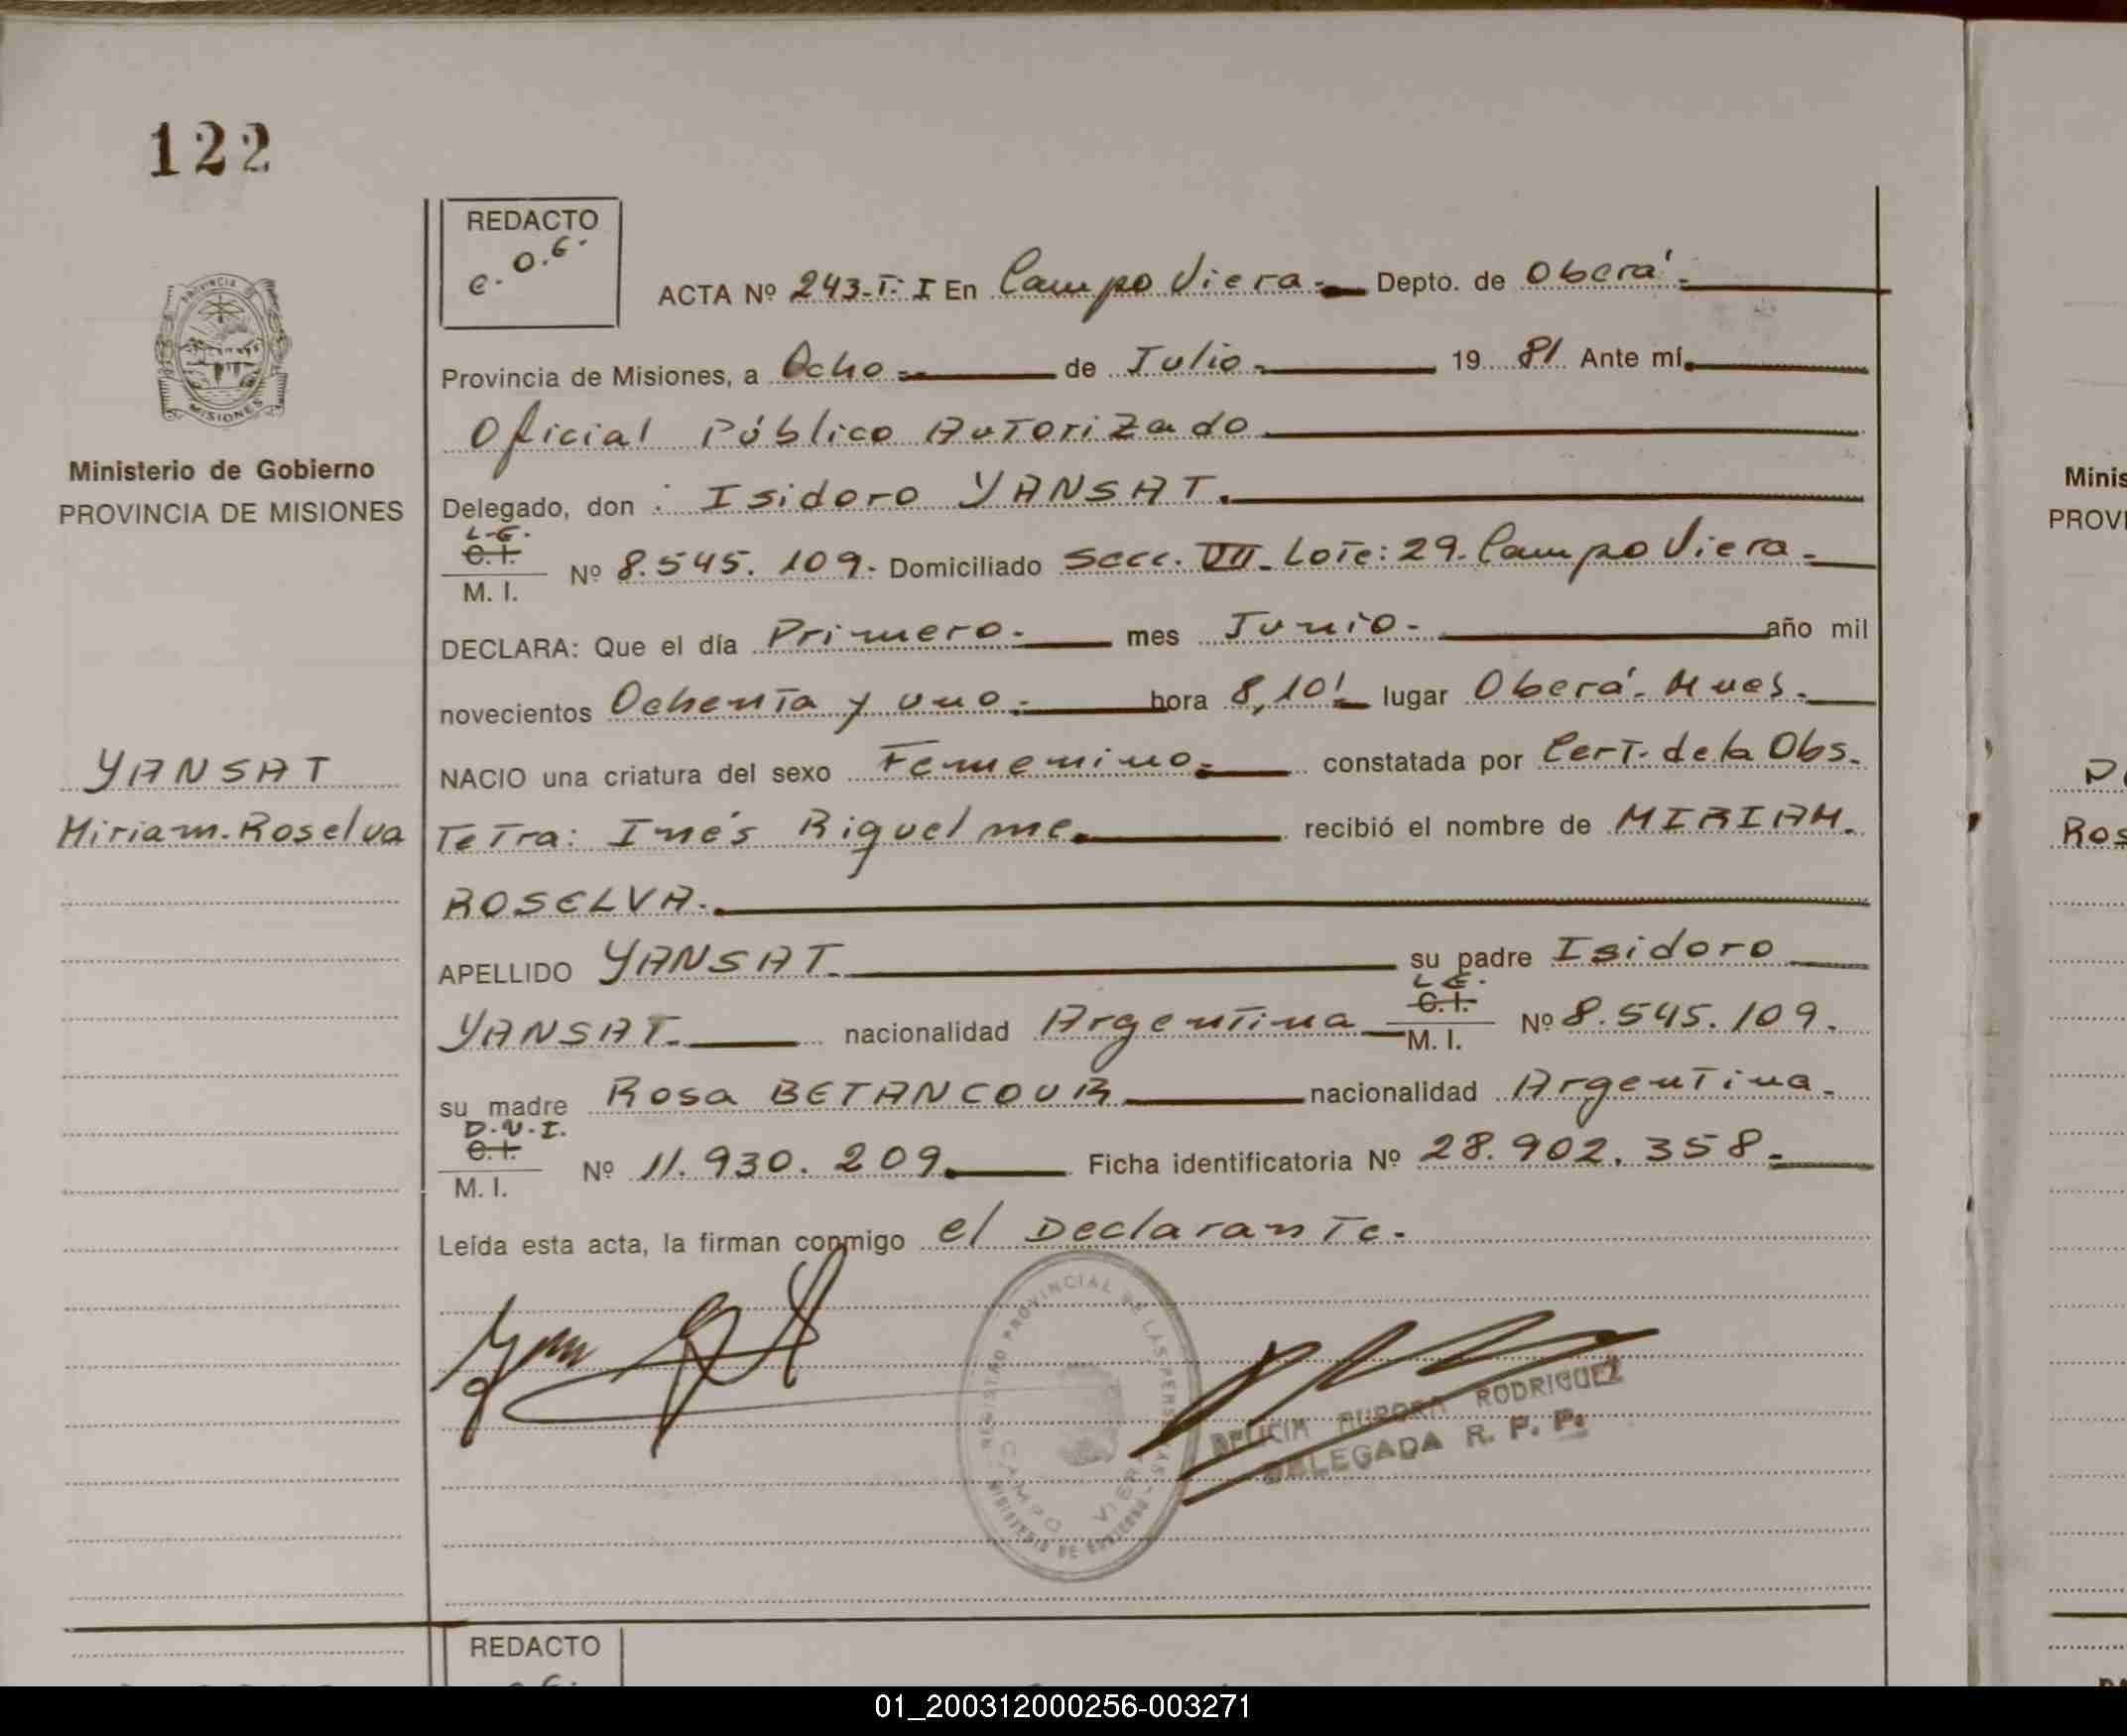 122
REDACTO
C. O. G.
ACTA Nº 243-T: I En Campo Viera.- Depto. de Oberá.-
Provincia de Misiones, a Ocho.- de Julio.- 19 81. Ante mí.
Oficial Público Autorizado
Delegado, don : Isidoro YANSAT.
L.E.
C.I.
M. I.
Nº 8.545.109.- Domiciliado Secc. VII- Lote: 29. Campo Viera.-
DECLARA: Que el día Primero.- mes Junio.- año mil
novecientos Ochenta y uno.- hora 8,10'.- lugar Oberá.- Mnes.-
NACIO una criatura del sexo Femenino.- constatada por Cert. de la Obs.-
Tetra: Inés Riquelme. recibió el nombre de MIRIAM.
ROSELVA.
APELLIDO YANSAT.- su padre Isidoro
L.E.
C.I.
M. I.
YANSAT.- nacionalidad Argentina Nº 8.545.109.
su madre Rosa BETANCOUR nacionalidad Argentina.-
D.N.I.
C.I.
M. I.
Nº 11.930.209. Ficha identificatoria Nº 28.902.358.-
Leída esta acta, la firman conmigo el Declarante.-
REGISTRO PROVINCIAL DE LAS PERSONAS
CAMPO VIERA
MINISTERIO DE GOBIERNO
DELICIA AURORA RODRIGUEZ
DELEGADA R. P. P.
REDACTO
PROVINCIA DE
MISIONES
Ministerio de Gobierno
PROVINCIA DE MISIONES
YANSAT
Miriam. Roselva
Minis
PROVI
Ros
01_200312000256-003271